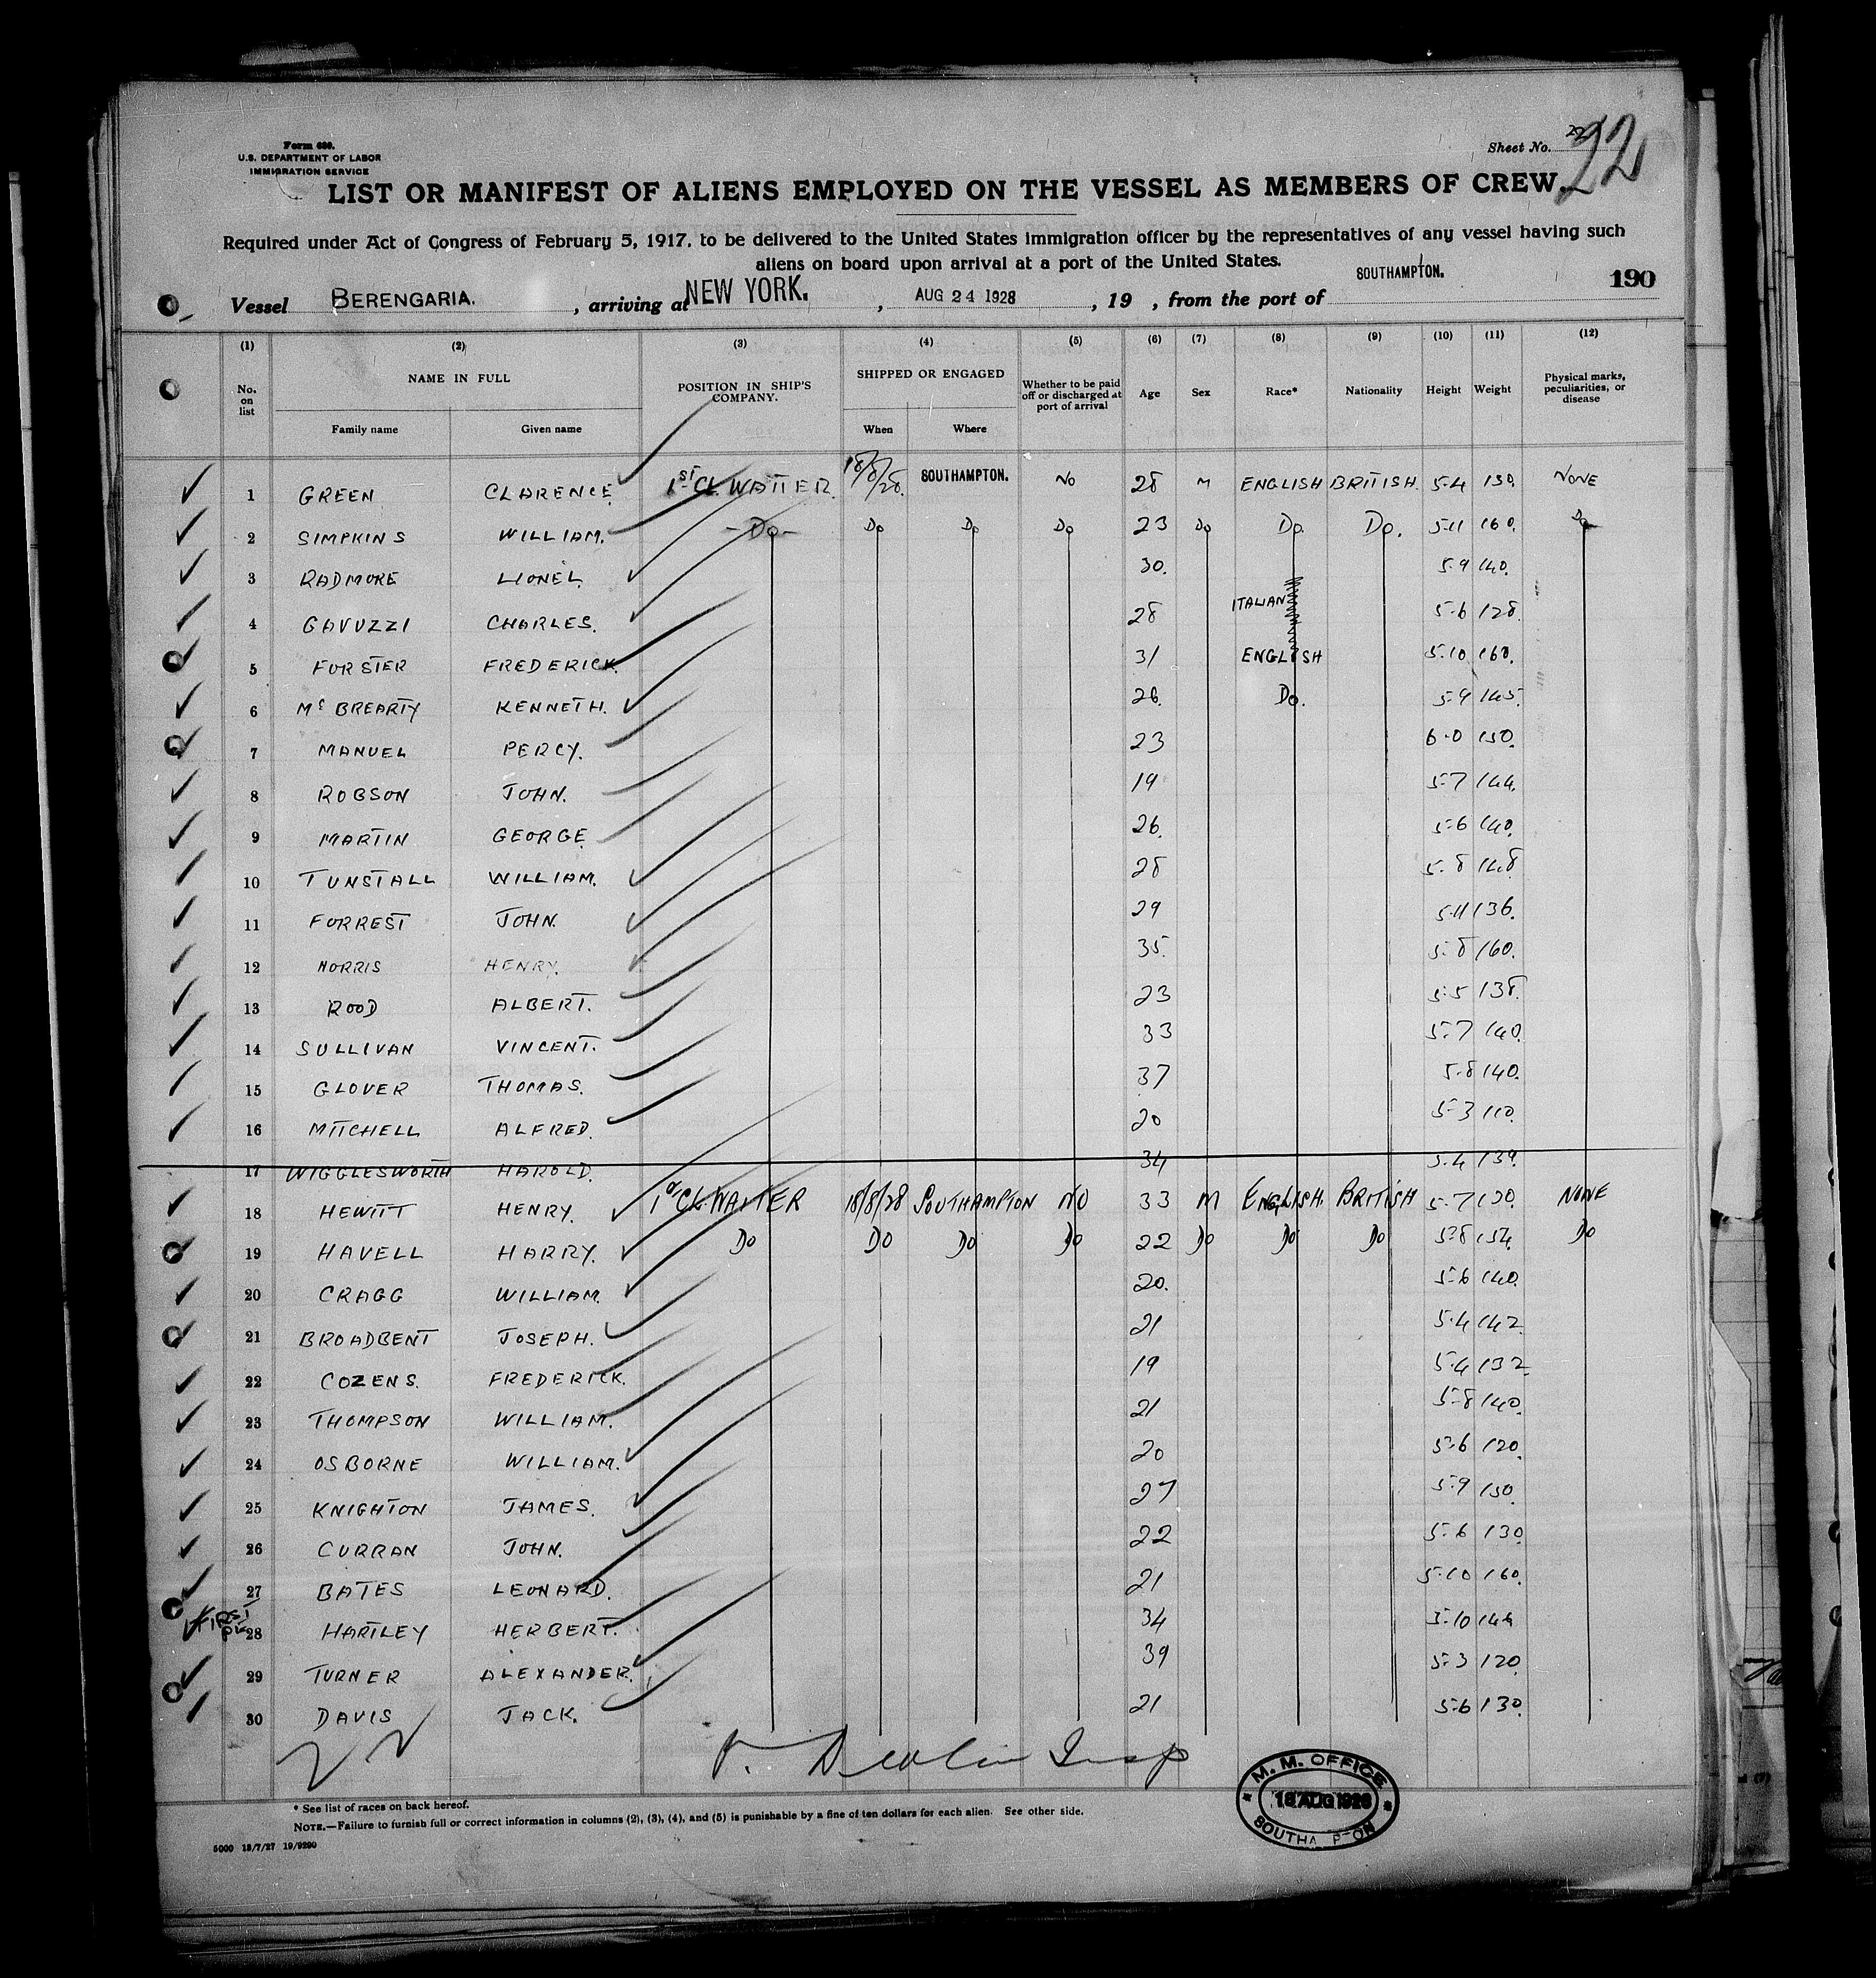 Form 680.
U.S. DEPARTMENT OF LABOR
IMMIGRATION SERVICE
Sheet No. 22
LIST OR MANIFEST OF ALIENS EMPLOYED ON THE VESSEL AS MEMBERS OF CREW.
Required under Act of Congress of February 5, 1917, to be delivered to the United States immigration officer by the representatives of any vessel having such
aliens on board upon arrival at a port of the United States.
Vessel BERENGARIA. , arriving at NEW YORK. , AUG 24 1928 , 19 , from the port of SOUTHAMPTON. 190
(1) (2) (3) (4) (5) (6) (7) (8) (9) (10) (11) (12)
No. on list NAME IN FULL POSITION IN SHIP'S COMPANY. SHIPPED OR ENGAGED Whether to be paid off or discharged at port of arrival Age Sex Race* Nationality Height Weight Physical marks, peculiarities, or disease
Family name Given name When Where
1 GREEN CLARENCE 1ST CL. WAITER. 18/8/28. SOUTHAMPTON. NO 28 M ENGLISH BRITISH. 5.4 130. NONE
2 SIMPKINS WILLIAM. -Do- Do Do Do 23 Do Do. Do. 5.11 160. Do
3 RADMORE LIONEL. 30. 5.9 140.
4 GAVUZZI CHARLES. 28 ITALIAN 5.6 128.
5 FORSTER FREDERICK. 31 ENGLISH 5.10 160.
6 Mc BREARTY KENNETH. 26. Do. 5.9 145.
7 MANUEL PERCY. 23 6.0 150.
8 ROBSON JOHN. 19 5.7 144.
9 MARTIN GEORGE 26. 5.6 140.
10 TUNSTALL WILLIAM. 28 5.8 148.
11 FORREST JOHN. 29 5.11 136.
12 HENRY. 35. 5.8 160.
13 ROOD ALBERT. 23 5.5 138.
14 SULLIVAN VINCENT. 33 5.7 140.
15 GLOVER THOMAS. 37 5.8 140.
16 MITCHELL ALFRED. 20 5.3 110.
17 WIGGLESWORTH HAROLD. 34 5.4 139.
18 HEWITT HENRY. 1st CL. WAITER 18/8/28 SOUTHAMPTON NO 33 M ENGLISH. BRITISH 5.7 130. NONE
19 HAVELL HARRY. Do Do Do Do 22 Do Do Do 5.8 134. Do
20 CRAGG WILLIAM. 20. 5.6 140.
21 BROADBENT JOSEPH. 21 5.4 142.
22 COZENS. FREDERICK. 19 5.4 132
23 THOMPSON WILLIAM. 21 5.8 140.
24 OSBORNE WILLIAM. 20 5.6 120.
25 KNIGHTON JAMES. 27 5.9 150.
26 CURRAN JOHN. 22 5.6 130
27 BATES LEONARD. 21 5.10 160.
FIRST
28 HARTLEY HERBERT. 34 5.10 144
29 TURNER ALEXANDER. 39 5.3 120.
30 DAVIS JACK. 21 5.6 130.
Insp
M. M. OFFICE
18 AUG 1928
SOUTHA P-ON
* See list of races on back hereof.
NOTE.—Failure to furnish full or correct information in columns (2), (3), (4), and (5) is punishable by a fine of ten dollars for each alien. See other side.
5000 13/7/27 19/9290